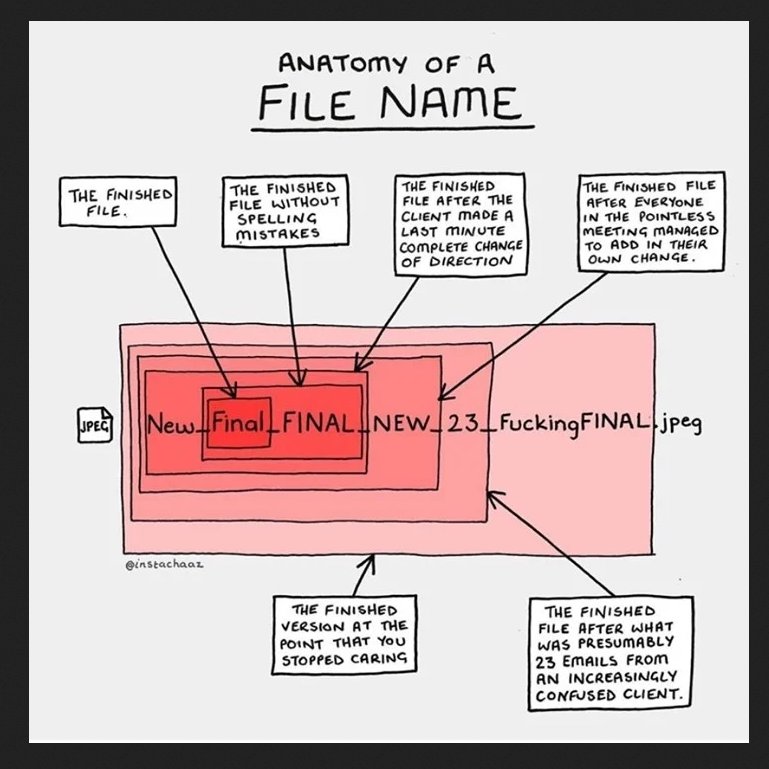 ANATOMY OF A
FILE NAME
THE FINISHED
FILE.
THE FINISHED
FILE WITHOUT
SPELLING
MISTAKES
THE FINISHED
FILE AFTER THE
CLIENT MADE A
LAST MINUTE
COMPLETE CHANGE
OF DIRECTION
THE FINISHED FILE
AFTER EVERYONE
IN THE POINTLESS
MEETING MANAGED
TO ADD IN THEIR
OWN CHANGE.
JPEG
New_Final_FINAL_NEW_23_FuckingFINAL.jpeg
@instachaaz
THE FINISHED
VERSION AT THE
POINT THAT YOU
STOPPED CARING
THE FINISHED
FILE AFTER WHAT
WAS PRESUMABLY
23 EMAILS FROM
AN INCREASINGLY
CONFUSED CLIENT.